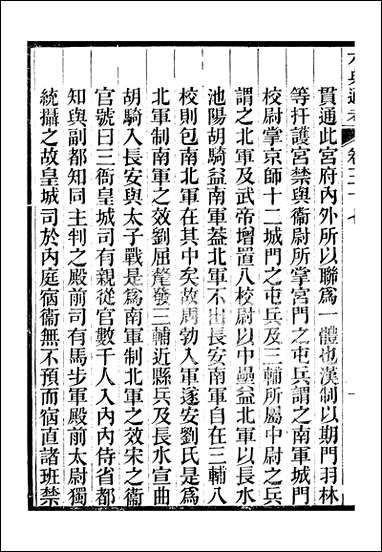 貫通此宮府內外所以聯爲一體也漢制以期門羽林
等扞護宮禁與衞尉所掌宮門之屯兵謂之南軍城門
校尉掌京師十二城門之屯兵及三輔所屬中尉之兵
謂之北軍及武帝增置八校尉以中壘益北軍以長水
池陽胡騎益南軍葢北軍不出長安南軍自在三輔八
校則包南北軍在其中矣故周勃入軍遂安劉氏是爲
北軍制南軍之效劉屈氂發三輔近縣兵及長水宣曲
胡騎入長安與太子戰是爲南軍制北軍之效宋之衞
官號曰三衙皇城司有親從官數千人入內內侍省都
知與副都知同主判之殿前司有馬步軍殿前太尉獨
統攝之故皇城司於內庭宿衞無不預而宿直諸班禁